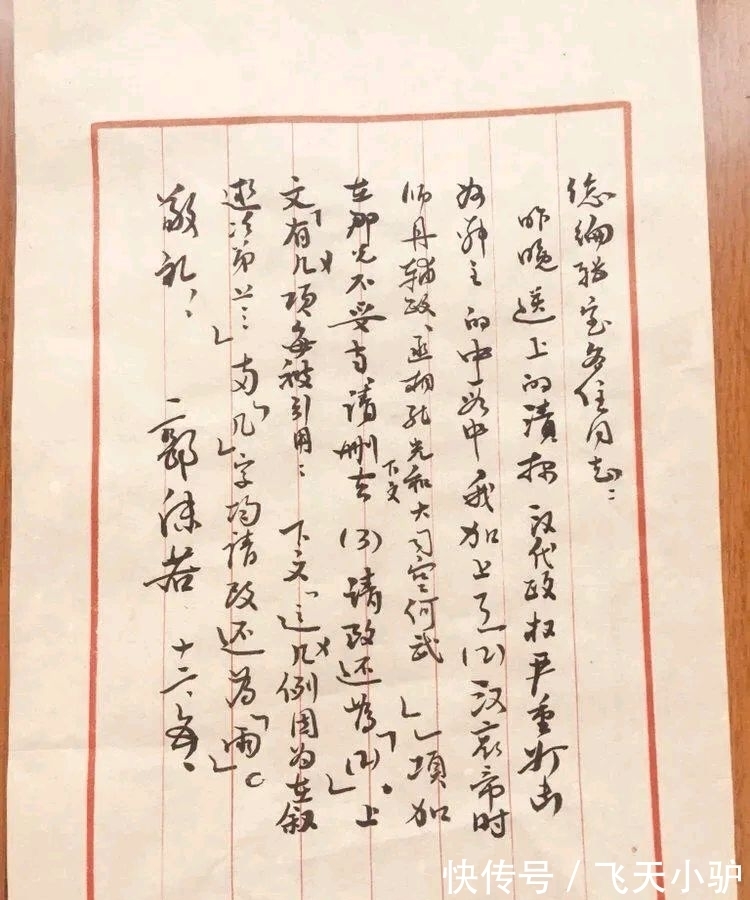 总编辑室各位同志：
昨晚送上的读报汉代政权严重打击
奴隶主的中一段中我加上了「(2)汉哀帝时
师丹辅政、丞相孔光和大司空何武」一项加
在那儿不妥当请删去下文(3)请改还为「(2)」。上
文「有几项每被引用：下文「这几例因为在叙
述次第上」两「几」字均请改还为「两」。
敬礼！
郭沫若 十六、午、
快传号 / 飞天小驴